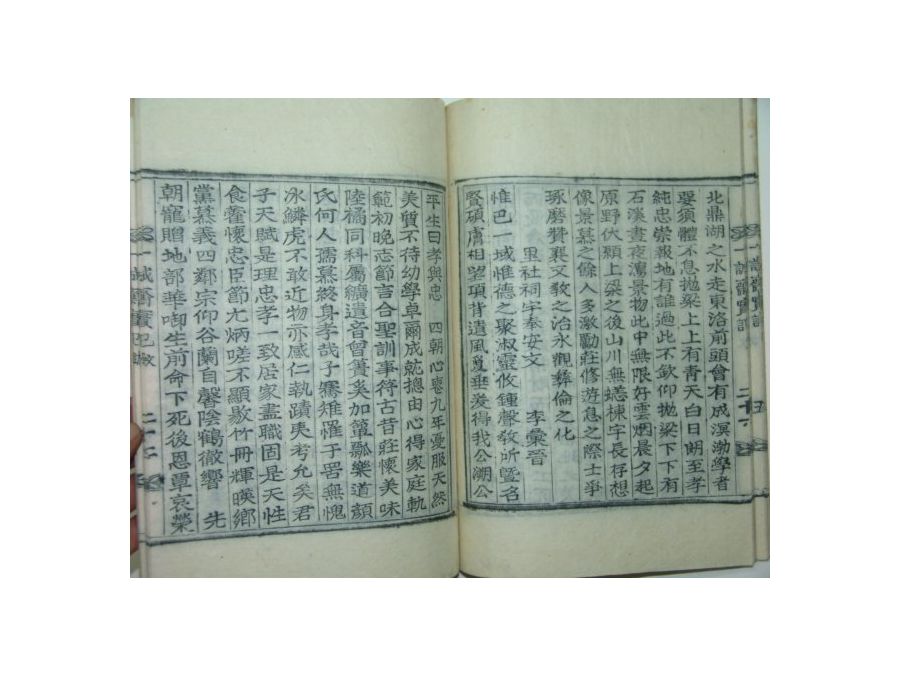 北鼎湖之水走東洛前頭曾有成溟渤學者
要須體不息拋梁上上有青天白日朗至孝
純忠崇報地有誰過此不欽仰拋梁下下有
石溪晝夜瀉景物此中無限好雲烟晨夕起
原野伏願上梁之後山川無恙棟宇長存想
像景慕之餘人多激勵莊修遊息之際士爭
琢磨贊襄文敎之治永觀彝倫之化
里社祠宇奉安文 李彙晉
惟巴一域惟德之聚淑靈攸鍾聲敎所曁名
賢碩膚相望項背遺風夐垂爰得我公湖公
平生曰孝與忠 四朝心喪九年憂服天然
美質不待幼學卓爾成就摠由心得家庭軌
範初晚志節言合聖訓事符古昔莊懷美味
陸橘同科屬纊遺音曾簀矣加簞瓢樂道顔
氏何人孺慕終身孝哉子騫雉罹子罟無愧
冰鱗虎不敢近物亦感仁執蹟夷考允矣君
子天賦是理忠孝一致居家盡職固是天性
食藿懷忠臣節尤炳嗟不顯歇竹冊輝暎鄕
黨慕義四鄰宗仰谷蘭自馨陰鶴徹響 先
朝寵贈地部華啣生前命下死後恩覃哀榮